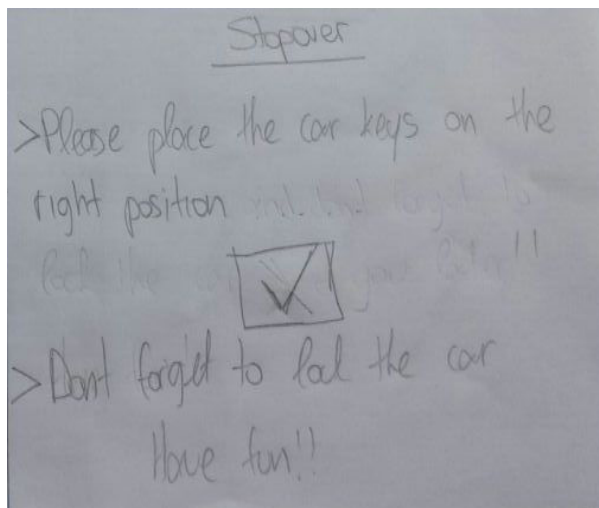 Stopover
>Please place the car keys on the
right position
!!
>Dont forget to the car
Have fun!!